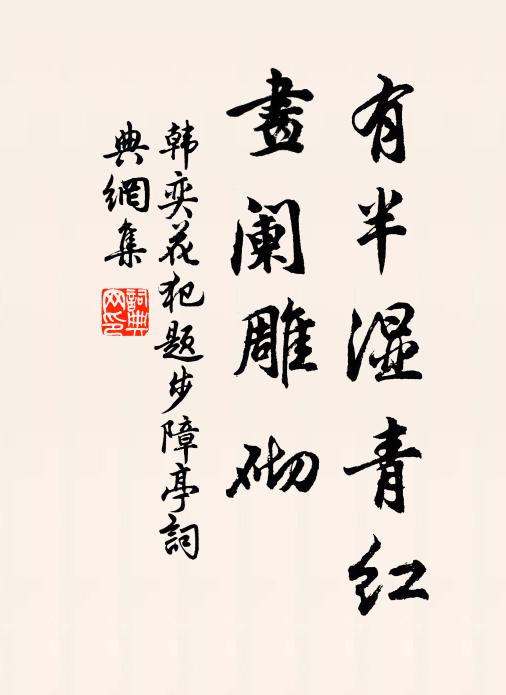 有半湿青红
畫阑雕砌
韩奕花犯题步障亭詞
典網集
詞典网印